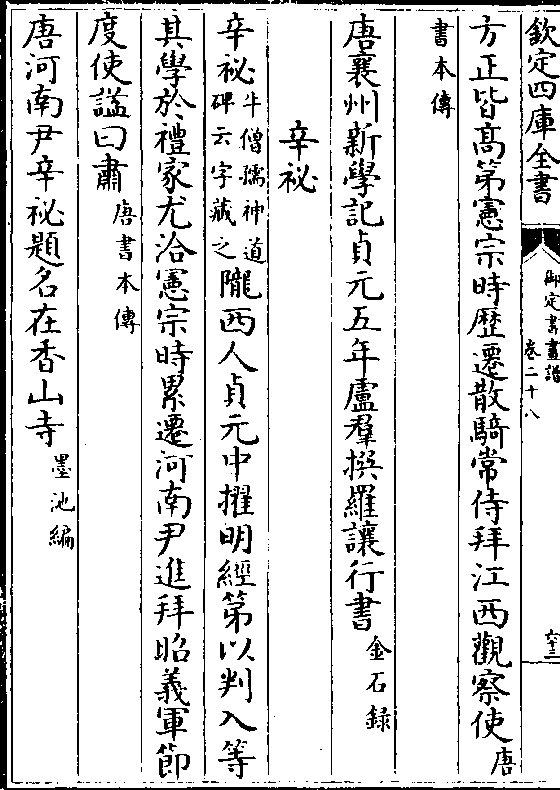 欽定四庫全書
御定書畫譜
卷二十八
六十三
方正皆高第憲宗時歷遷散騎常侍拜江西觀察使唐
書本傳
唐襄州新學記貞元五年盧羣撰羅讓行書金石錄
辛祕
辛祕牛僧孺神道碑云字藏之隴西人貞元中擢明經第以判入等
其學於禮家尤洽憲宗時累遷河南尹進拜昭義軍節
度使諡曰肅唐書本傳
唐河南尹辛祕題名在香山寺墨池編